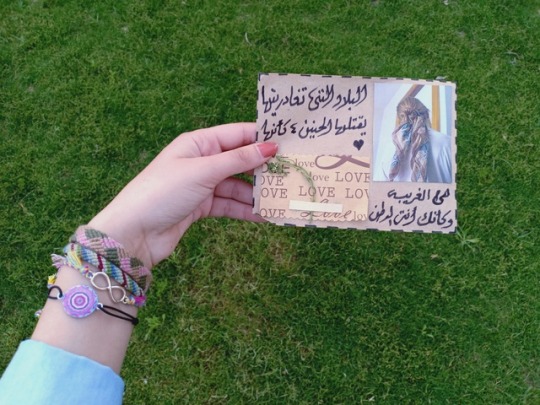 البلاد التي تغادرينها
يقتلها الحنين، كأنها
هي الغريبة
وكأنك أنتِ الوطن
love
love LOVE
LOVE LOVE LO
LOVE
Love lo